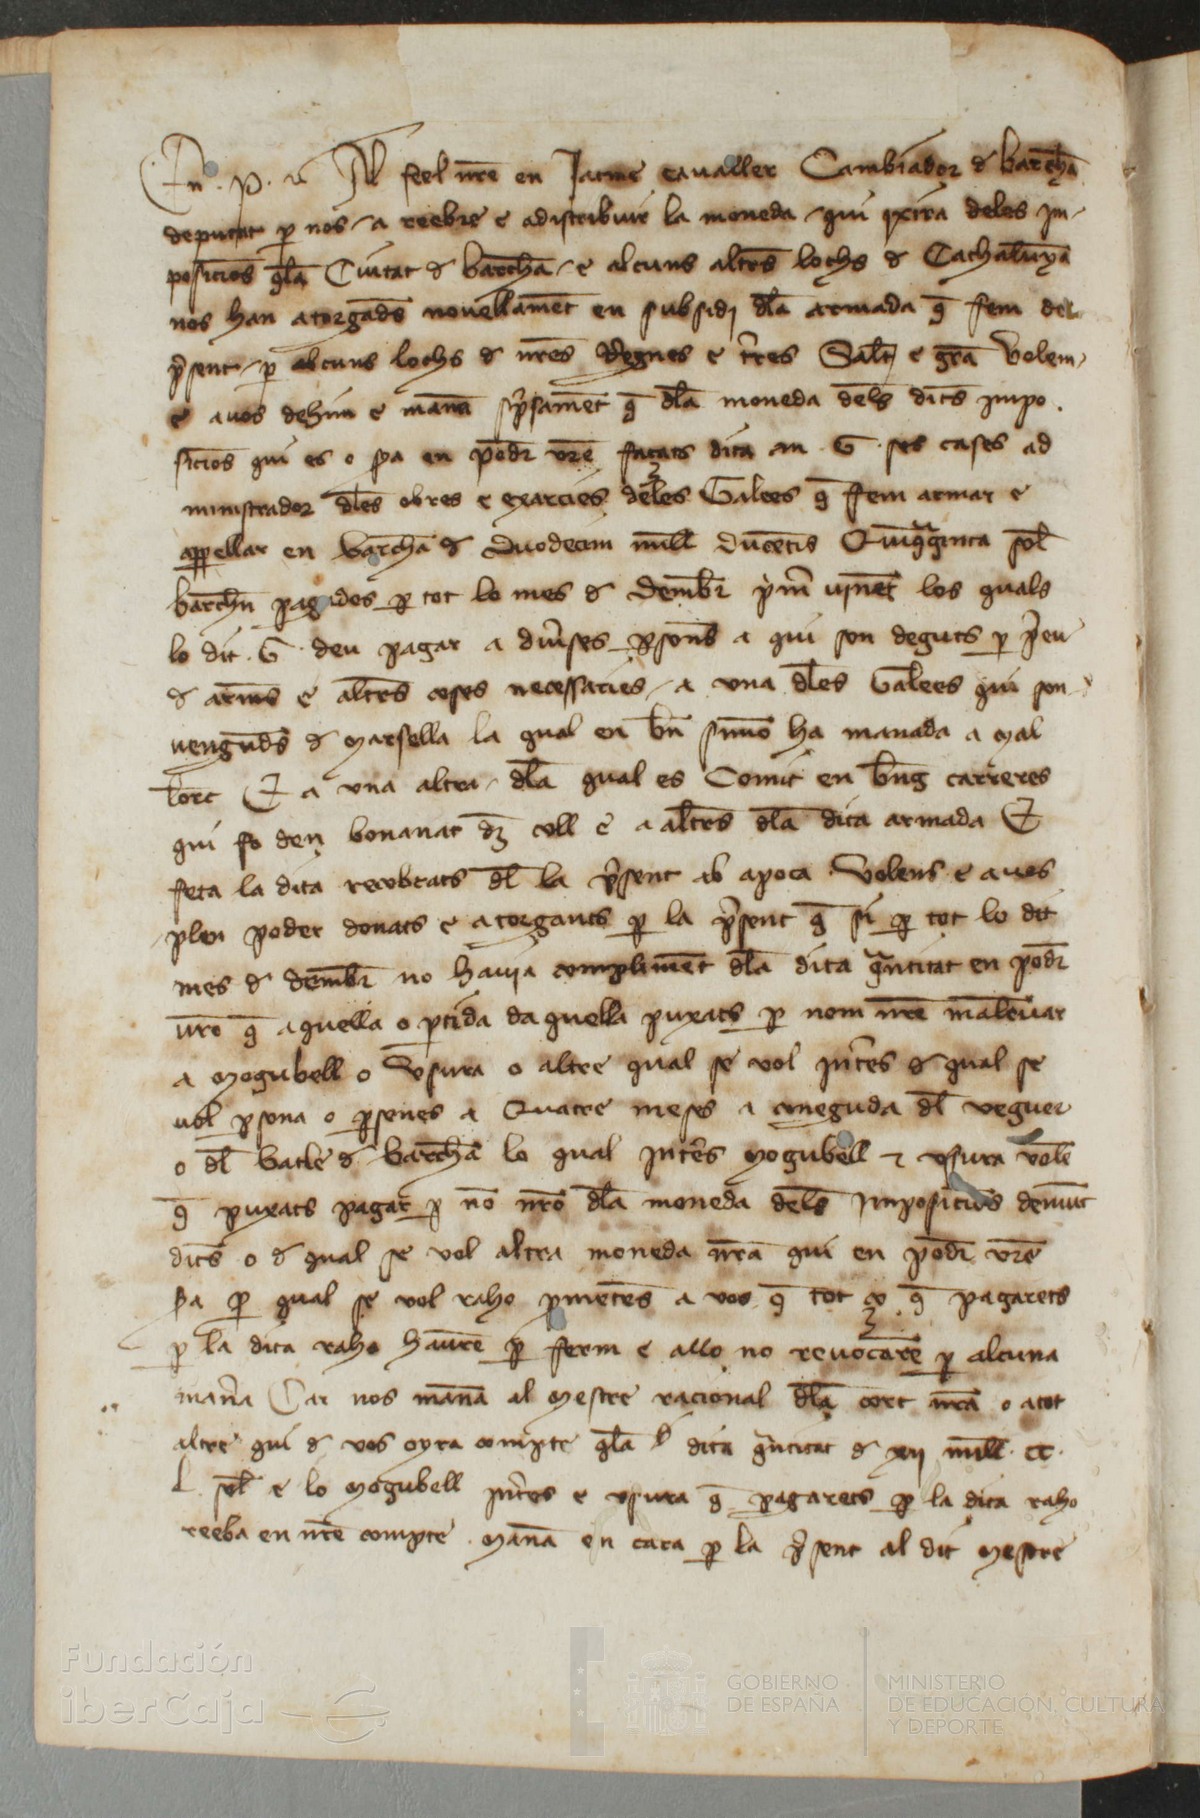 En .P. etc Al feel nre en Jacme cavaller Cambiador de barchna
deputat p nos a reebre e adistribuir la moneda qui exira deles im-
posicios q la Ciutat de barchna e alcuns altres lochs de Cathalunya
nos han atorgades novellament en subsidi dla armada q fem de
psent p alcuns lochs de nres Regnes e tres Salut e gra Volem
e avos dehim e manam expsament q dla moneda dels dits impo
sicios qui es o sia en poder vre façats dita an G ses cases ad
ministrador dles obres e exarcies deles Galees q fem armar e
appellar en barchna de Duodecim mill ducentis Quinquaginta sol
barchn pagades p tot lo mes de Dembr prim vinent los quals
lo dit .G. deu pagar a diverses psones a qui son deguts p preu
de armes e altres coses necessaries a una dles Galees qui son
vengudes de Marsella la qual en bn simo ha manada a Mal
lorc E a una altra dla qual es Comit en bng carreres
qui fo den bonanat des coll e a altres dla dita armada E
feta la dita recobrats dl la psent ab apoca Volens e avos
plen poder donats e atorgants p la psent q si p tot lo dit
mes de dembr no havia compliment dla dita quntitat en poder
vro q aquella o ptida daquella puxats p nom nre manlevar
a mogubell o Usura o altre qual se vol intres de qual se
vol psona o psones a Quatre meses a coneguda dl veguer
o dl batle de barchna lo qual intres mogubell e usura volem
q puxats pagar p no nro dla moneda dels imposicios demunt
dits o de qual se vol altra moneda nra qui en poder vre
sia p qual se vol raho pmetens a vos q tot ço q pagarets
p la dita raho haurem p ferm e allo no revocarem p alcuna
manra Car nos manam al Mestre racional dla cort nra o atot
altre qui de vos oyra compte q la dita quntitat de xii mill CC
L sol e lo mogubell intres e usura q pagarets p la dita raho
reeba en nre compte Manam en cara p la psent al dit Mestre
Fundación
iberCaja
GOBIERNO
DE ESPAÑA
MINISTERIO
DE EDUCACIÓN, CULTURA
Y DEPORTE